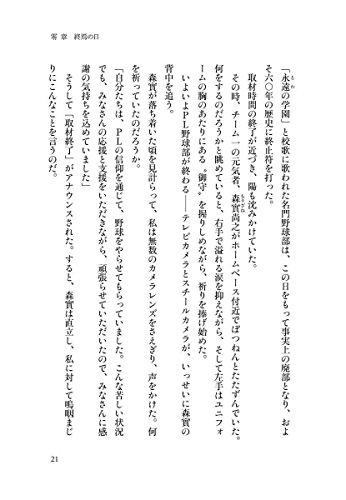 零章　終焉の日
「永遠の学園」と校歌に歌われた名門野球部は、この日をもって事実上の廃部となり、およ
とわ
そ六〇年の歴史に終止符を打った。
取材時間の終了が近づき、陽も沈みかけていた。
その時、チーム一の元気者、森實尚之がホームベース付近でぽつねんとたたずんでいた。
もりざね
何をするのだろうかと眺めていると、右手で溢れる涙を抑えながら、そして左手はユニフォ
ームの胸のあたりにある〝御守〟を握りしめながら、祈りを捧げ始めた。
いよいよＰＬ野球部が終わる――テレビカメラとスチールカメラが、いっせいに森實の
背中を追う。
森實が落ち着いた頃を見計らって、私は無数のカメラレンズをさえぎり、声をかけた。何
を祈っていたのだろうか。
「自分たちは、ＰＬの信仰を通じて、野球をやらせてもらっていました。こんな苦しい状況
でも、みなさんの応援と支援をいただきながら、頑張らせていただいたので、みなさんに感
謝の気持ちを込めていました」
そうして「取材終了」がアナウンスされた。すると、森實は直立し、私に対して嗚咽まじ
りにこんなことを言うのだ。
21